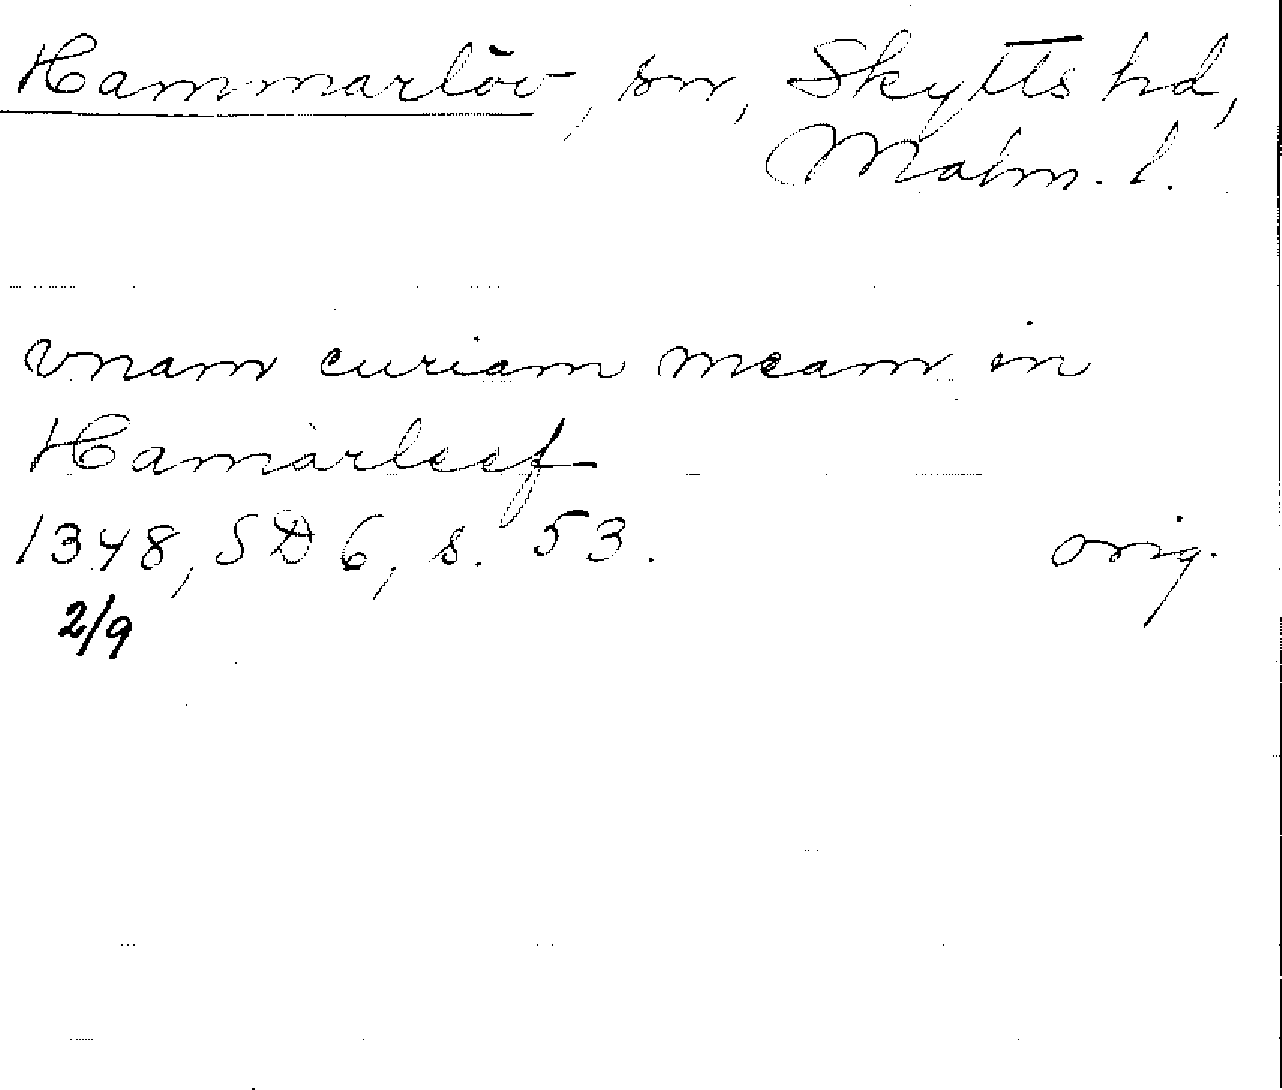 Hammarlöv, sn, Skytts hd,
Malm. l.
vnam curiam meam in
Hamarleef
1348, SD 6, s. 53. orig.
2/9